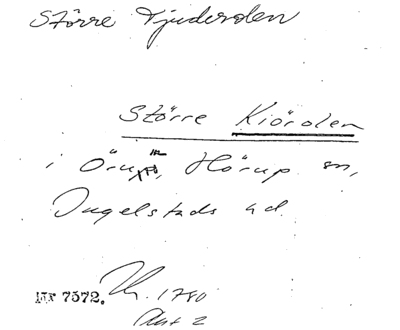 Större Tjuderolen
Större Kiörolen
i Örup, Hörup sn,
Ingelstads hd.
NR 7572. 1780
Akt 2